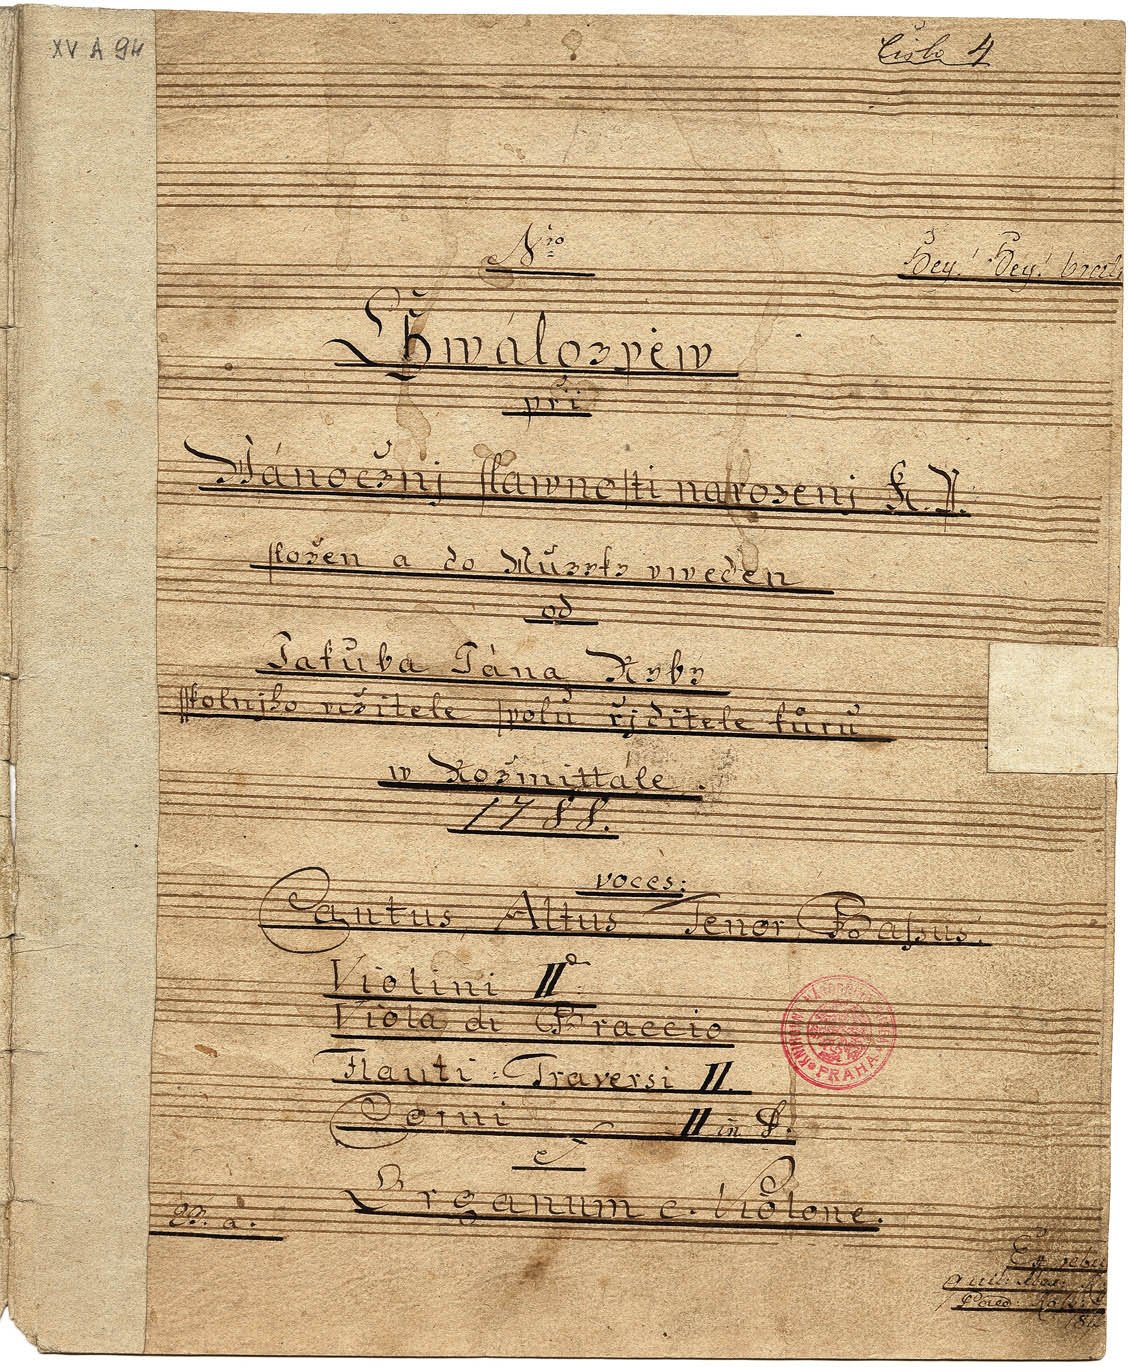 XV A 94
Číslo 4
Nro
Hey! Hey! bratř
Chwálozpěw
při
Wánočznj slawnosti narozenj K. P.
složen a do Můzyky vweden
od
Jakuba Jána Ryby
školnjho včitele spolu řjditele kůru
w Rožmittále.
1788.
voces:
Cantus, Altus Tenor, Bassus.
Violini IIo
Viola di Braccio
Flauti Traversi II.
Corni II in D.
et
Organum e. Violone.
PRAHA
Ex rebu